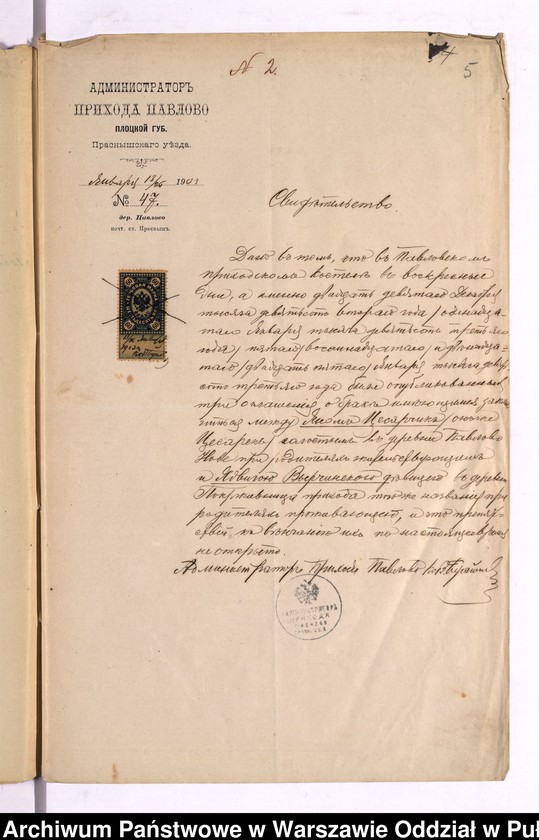 N 2.
4
5
АДМИНИСТРАТОРЪ
ПРИХОДА ПАВЛОВО
ПЛОЦКОЙ ГУБ.
Праснышскаго уѣзда.
Января 13/26 1903
№ 47.
дер. Павлово
почт. ст. Праснышъ.
Свидѣтельство.
Дано въ томъ, что въ Павловскомъ
приходскомъ костелѣ въ воскресные
дни, а именно двадцать девятаго Декабря
тысяча девятьсотъ второго года /одиннадца-
таго/ Января тысяча девятьсотъ третьяго
года, пятаго /восемнадцатаго/ и двѣнадца-
таго /двадцать пятаго/ Января тысяча девять
сотъ третьяго года были опубликованы
три оглашенія о бракѣ имѣющемся заклю-
читься между Яномъ Цесарчикъ
холостымъ въ деревни Павлово
Нове при родителяхъ жительствующимъ
и Ядвигою дѣвицею въ деревни
прихода того же названія при
родителяхъ проживающей, а что препят-
ствій къ вѣнчанію ихъ по настоящее время
не открыто.
Администраторъ Прихода Павлово
АДМИНИСТРАТОРЪ
ПРИХОДА
Archiwum Państwowe w Warszawie Oddział w Puł